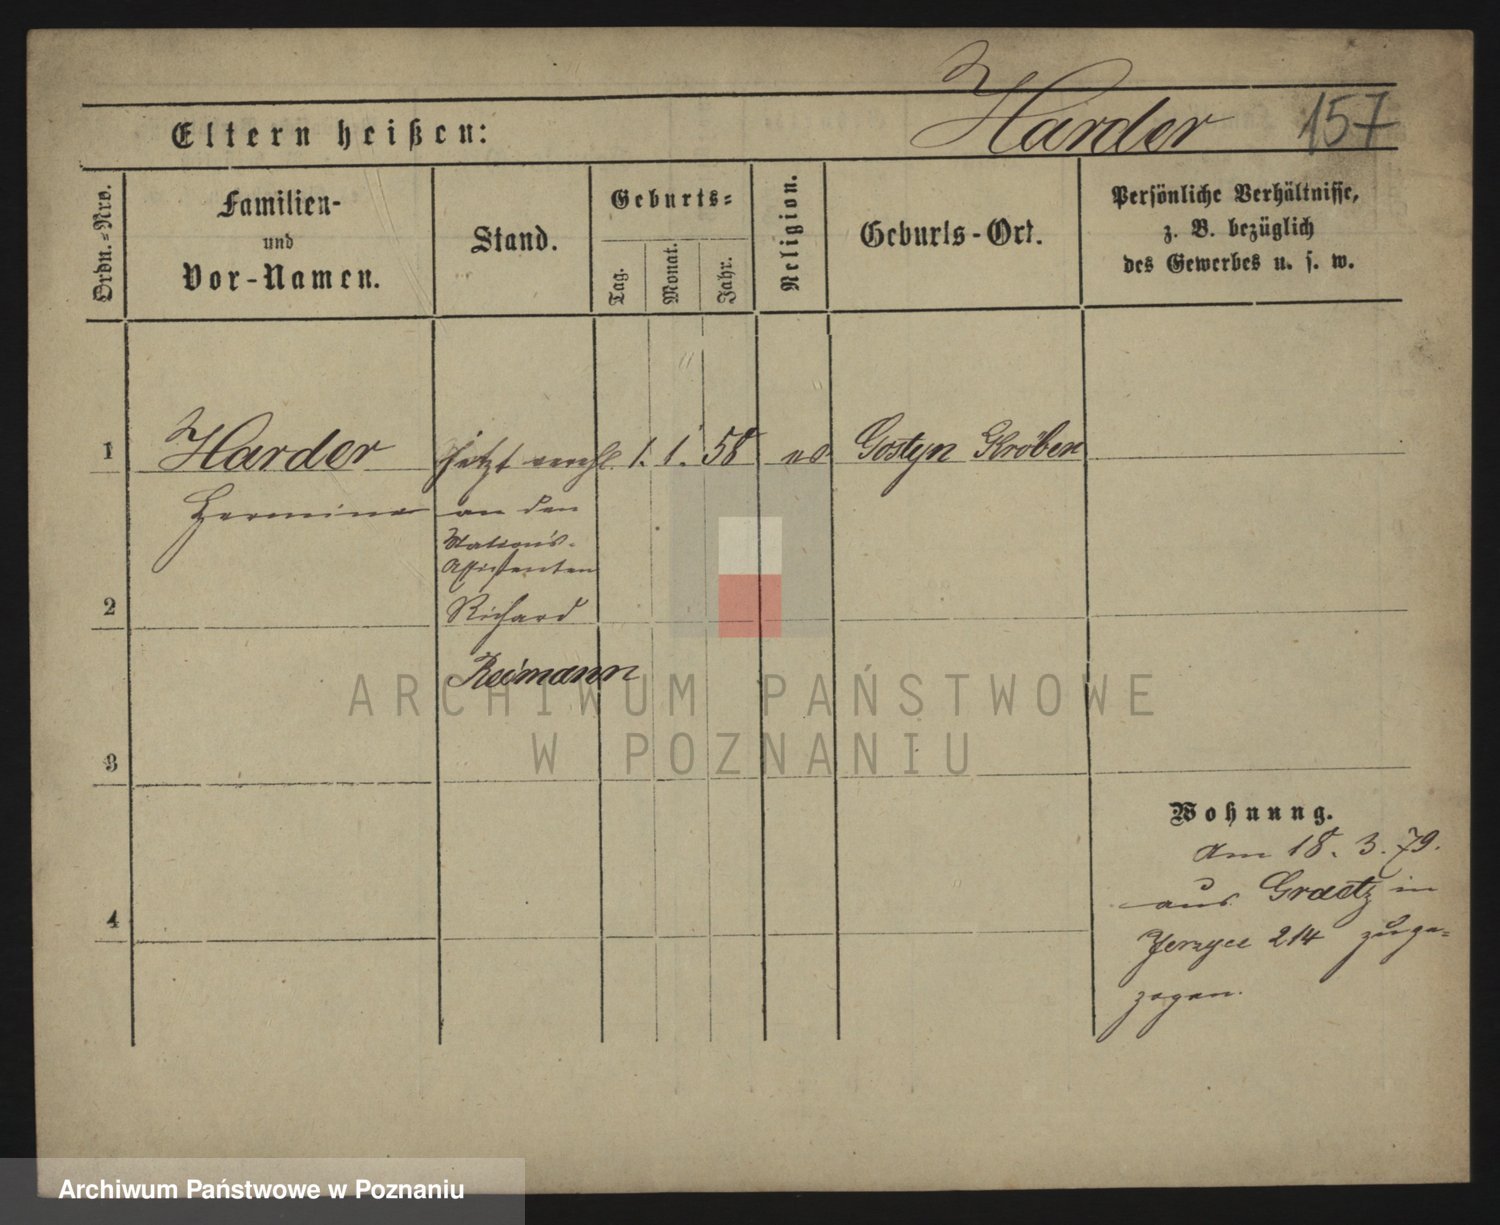 Harder 157
Eltern heißen:
Ordn.=Nro.
Familien-
und
Vor-Namen.
Stand.
Geburts=
Tag.
Monat.
Jahr.
Religion.
Geburts-Ort.
Persönliche Verhältnisse,
z. B. bezüglich
des Gewerbes u. s. w.
1 Harder jetzt verehl. 1. 1. 58 ev Gostyn Kröben
Hermine an den
Stations-
Assistenten
2 Richard
Reimann
ARCHIWUM PAŃSTWOWE
W POZNANIU
3
Wohnung.
Am 18. 3. 79.
aus Graetz in
4
Jerzyce 214 zuge=
zogen.
Archiwum Państwowe w Poznaniu